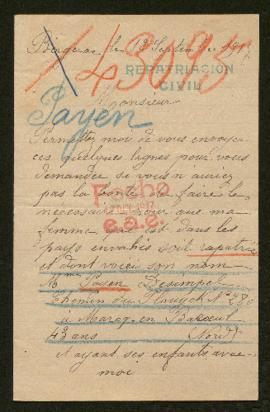 Bergerac le 12 Septembre 1917
143095
REPATRIACION
CIVIL
Monsieur
Payen
Permettez moi de vous envoyer
ces quelques lignes pour vous
demander se vous n'auriez
pas la bonté de faire le
nécessaire pour que ma
Fecho
femme qui est dans les
1917
pays envahis soit rapatrié
e.a.e.
et dont voici son nom
Mme Payen Desimpel
Chemin du N° 280
à Marcq en Baroeul
43 ans (Nord)
Ayant ses enfants avec
moi